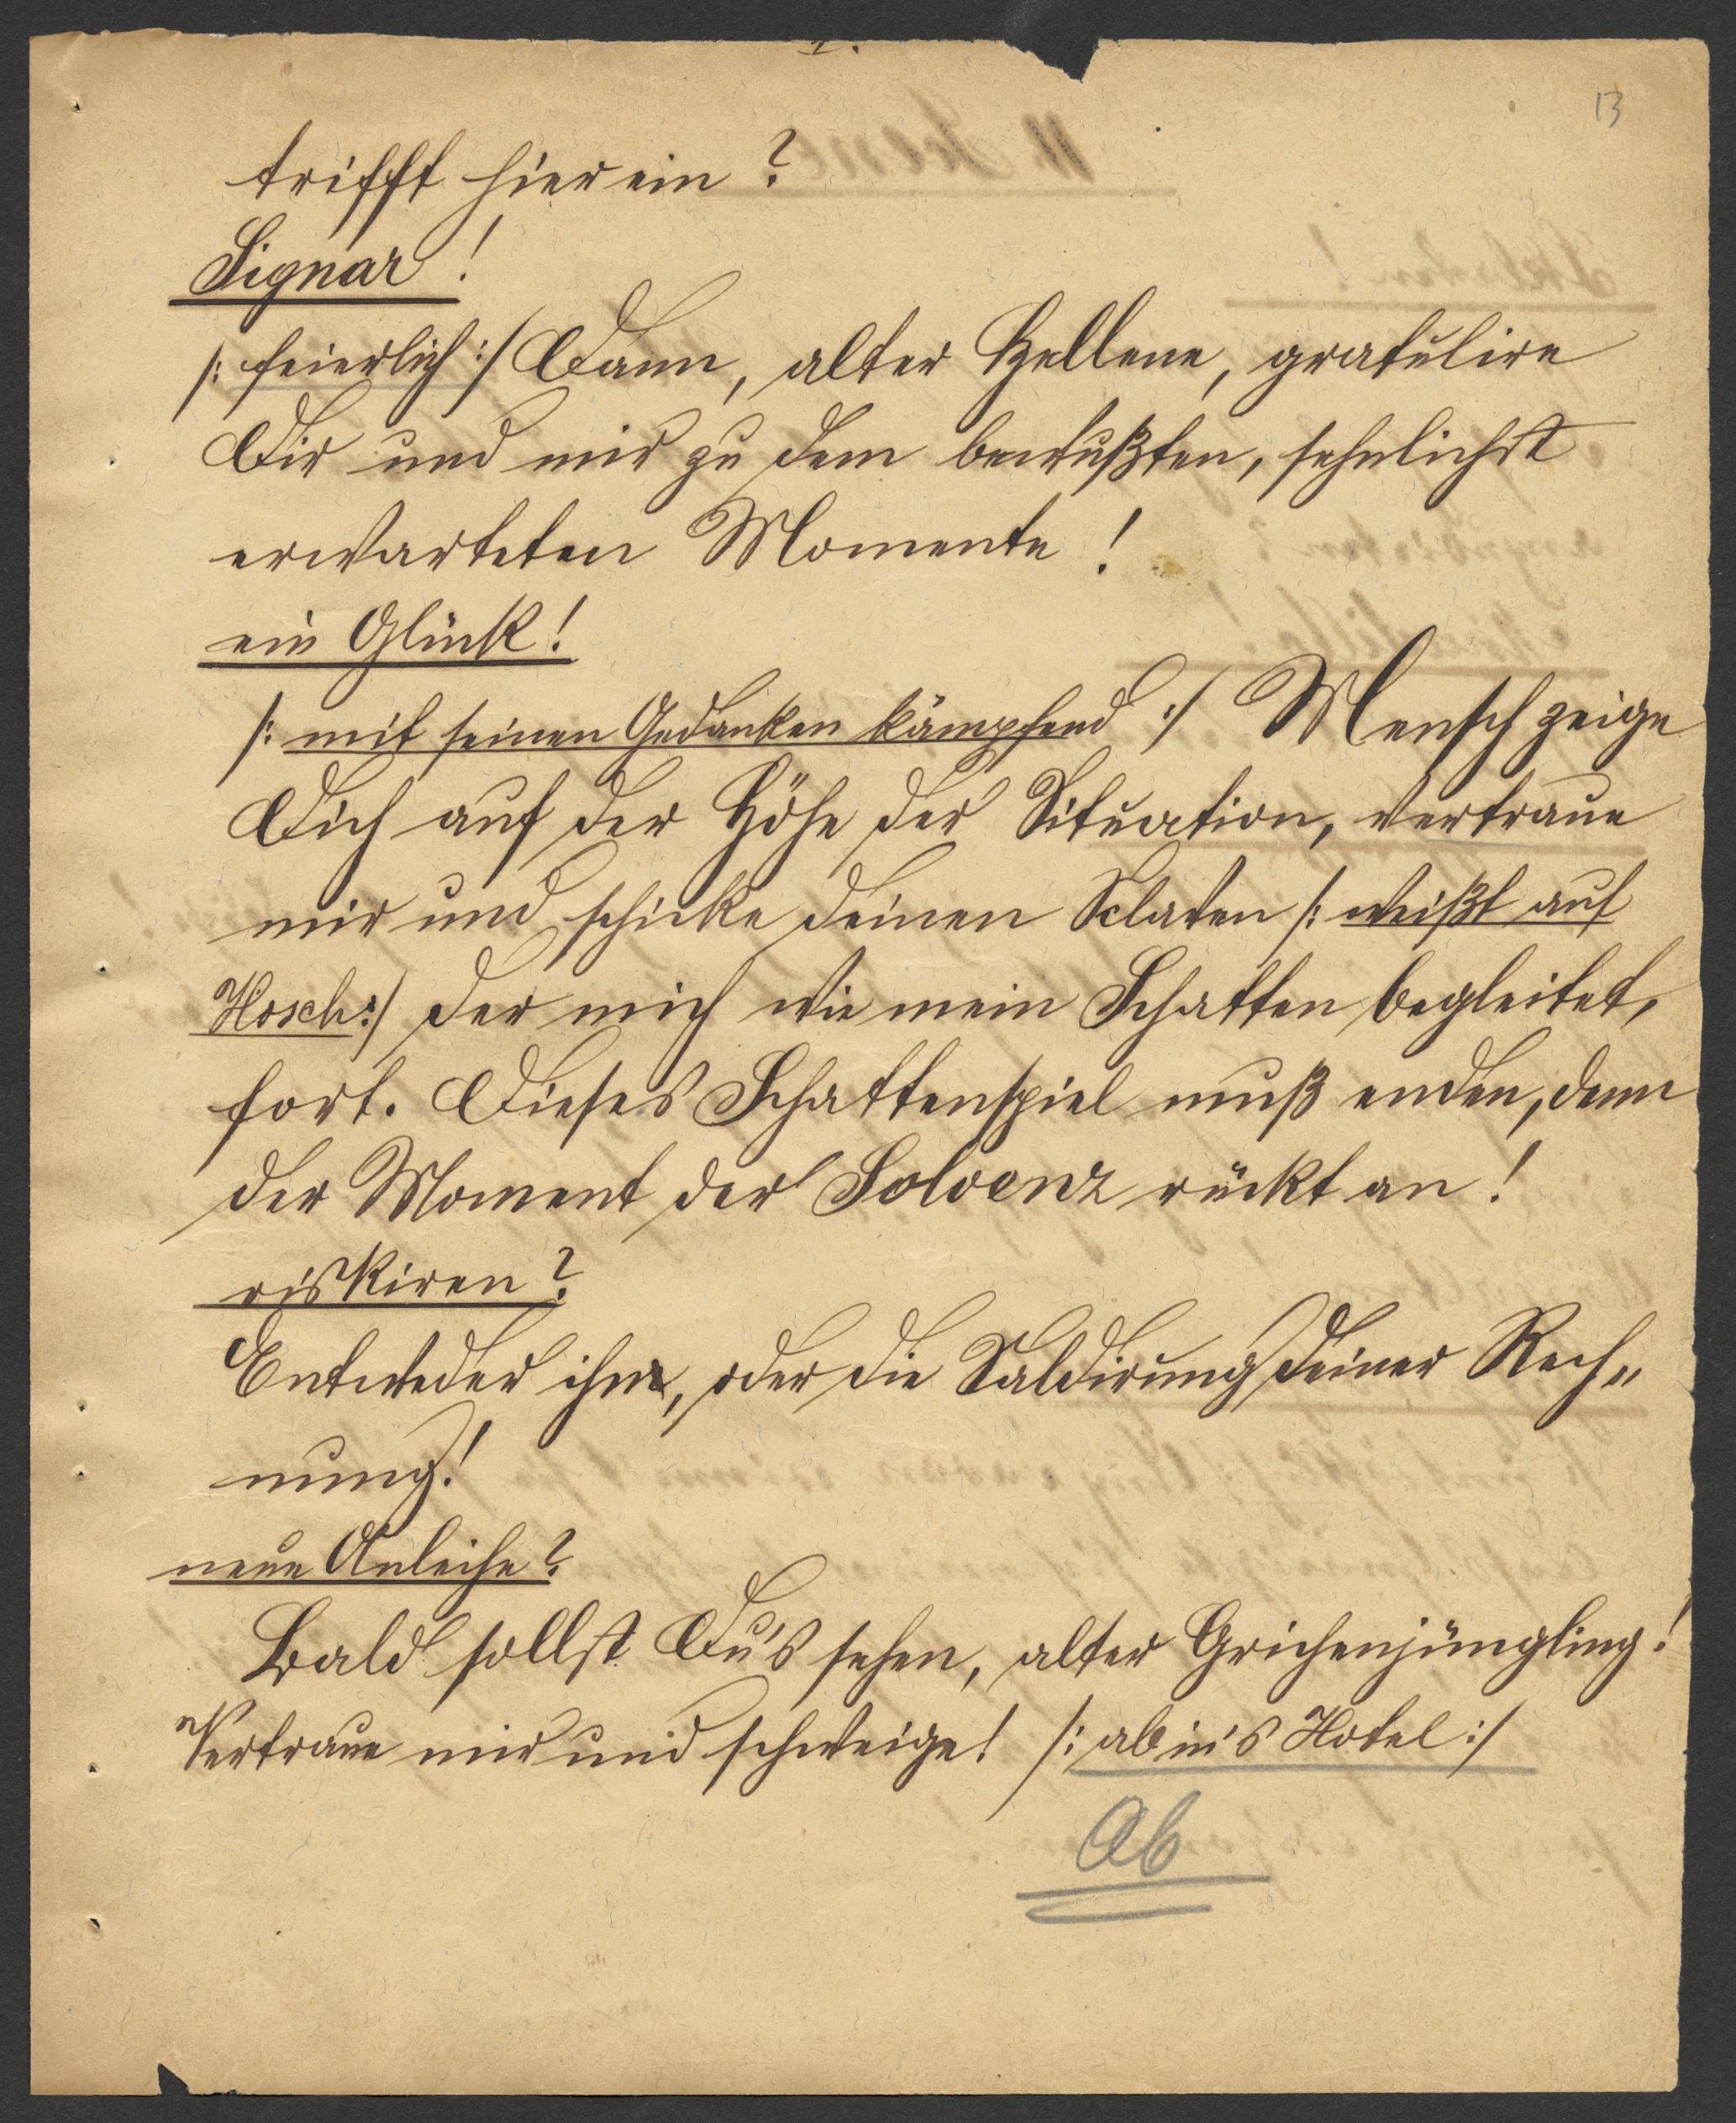 13
trifft hier ein?
Signar!
/: feierlich :/ Dann, alter Hellene, gratulire
Dir und mir zu dem bewußten, sehnlichst
erwarteten Momente!
ein Glück!
/: mit seinen Gedanken kämpfend :/ Mensch zeige
Dich auf der Höhe der Situation, vertraue
mir und schicke deinen Sclaven /: weißt auf
Hosch :/ der mich wie mein Schatten begleitet,
fort. Dieses Schattenspiel muß enden, denn
der Moment der Solvenz rückt an!
riskiren?
Entweder ihn, oder die Saldirung deiner Rech„
nung!
neue Anleihe?
Bald sollst Du's sehen, alter Grichenjüngling!
Vertraue mir und schweige! /: ab in's Hotel :/
Ab